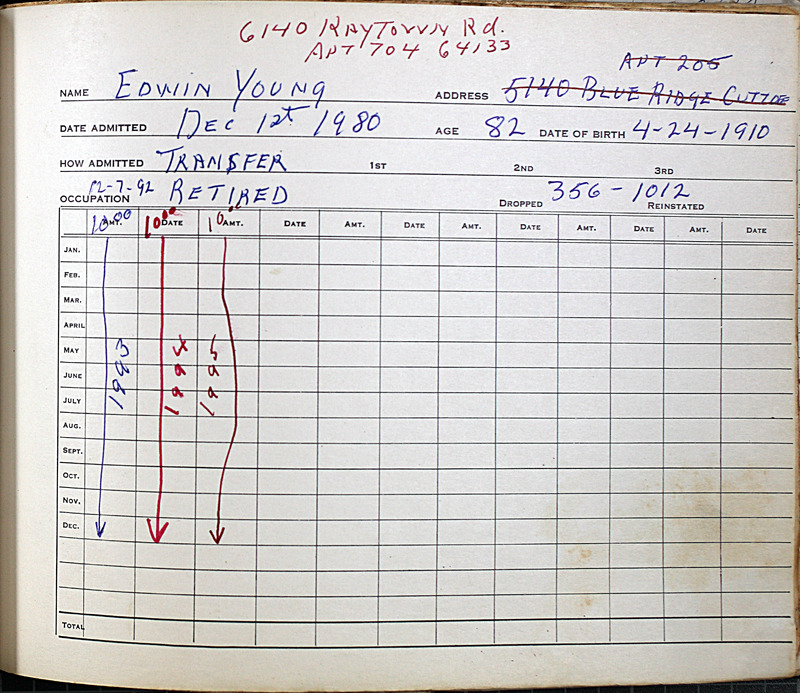 6140 RAYTOWN Rd.
APT 704 64133
APT 205
NAME EDWIN YOUNG ADDRESS 5140 BLUE RIDGE CUTTOE
DATE ADMITTED DEC 1st 1980 AGE 82 DATE OF BIRTH 4-24-1910
HOW ADMITTED TRANSFER 1ST 2ND 3RD
12-7-92 RETIRED 356-1012
OCCUPATION DROPPED REINSTATED
10.00 10.00 10.00
AMT. DATE AMT. DATE AMT. DATE AMT. DATE AMT. DATE AMT. DATE
JAN.
FEB.
MAR.
APRIL
MAY
JUNE
JULY
AUG.
SEPT.
OCT.
NOV.
DEC.
TOTAL
1993 1994 1995